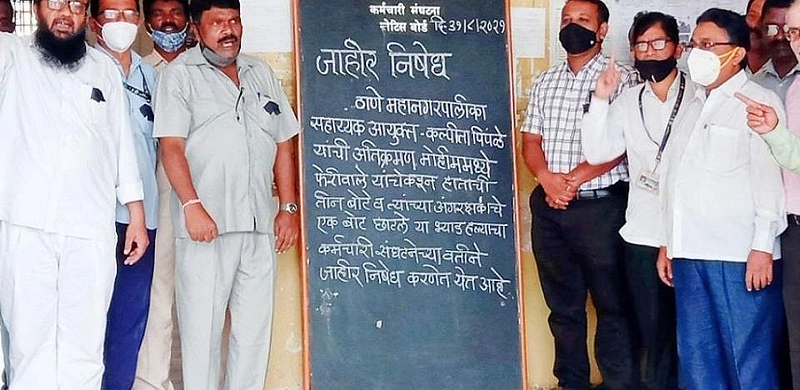 कर्मचारी संघटना
नोटिस बोर्ड दि-३१/८/२०२१
जाहीर निषेध
ठाणे महानगरपालीका
सहाय्यक आयुक्त - कल्पीता पिंपळे
यांची अतिक्रमण मोहीममध्ये
फेरीवाले यांचेकडून हाताची
तीन बोटे व त्याच्या अंगरक्षकाचे
एक बोट छाटले या भ्याड हल्याचा
कर्मचारी-संघटनेच्या वतीने
जाहीर निषेध करणेत येत आहे.